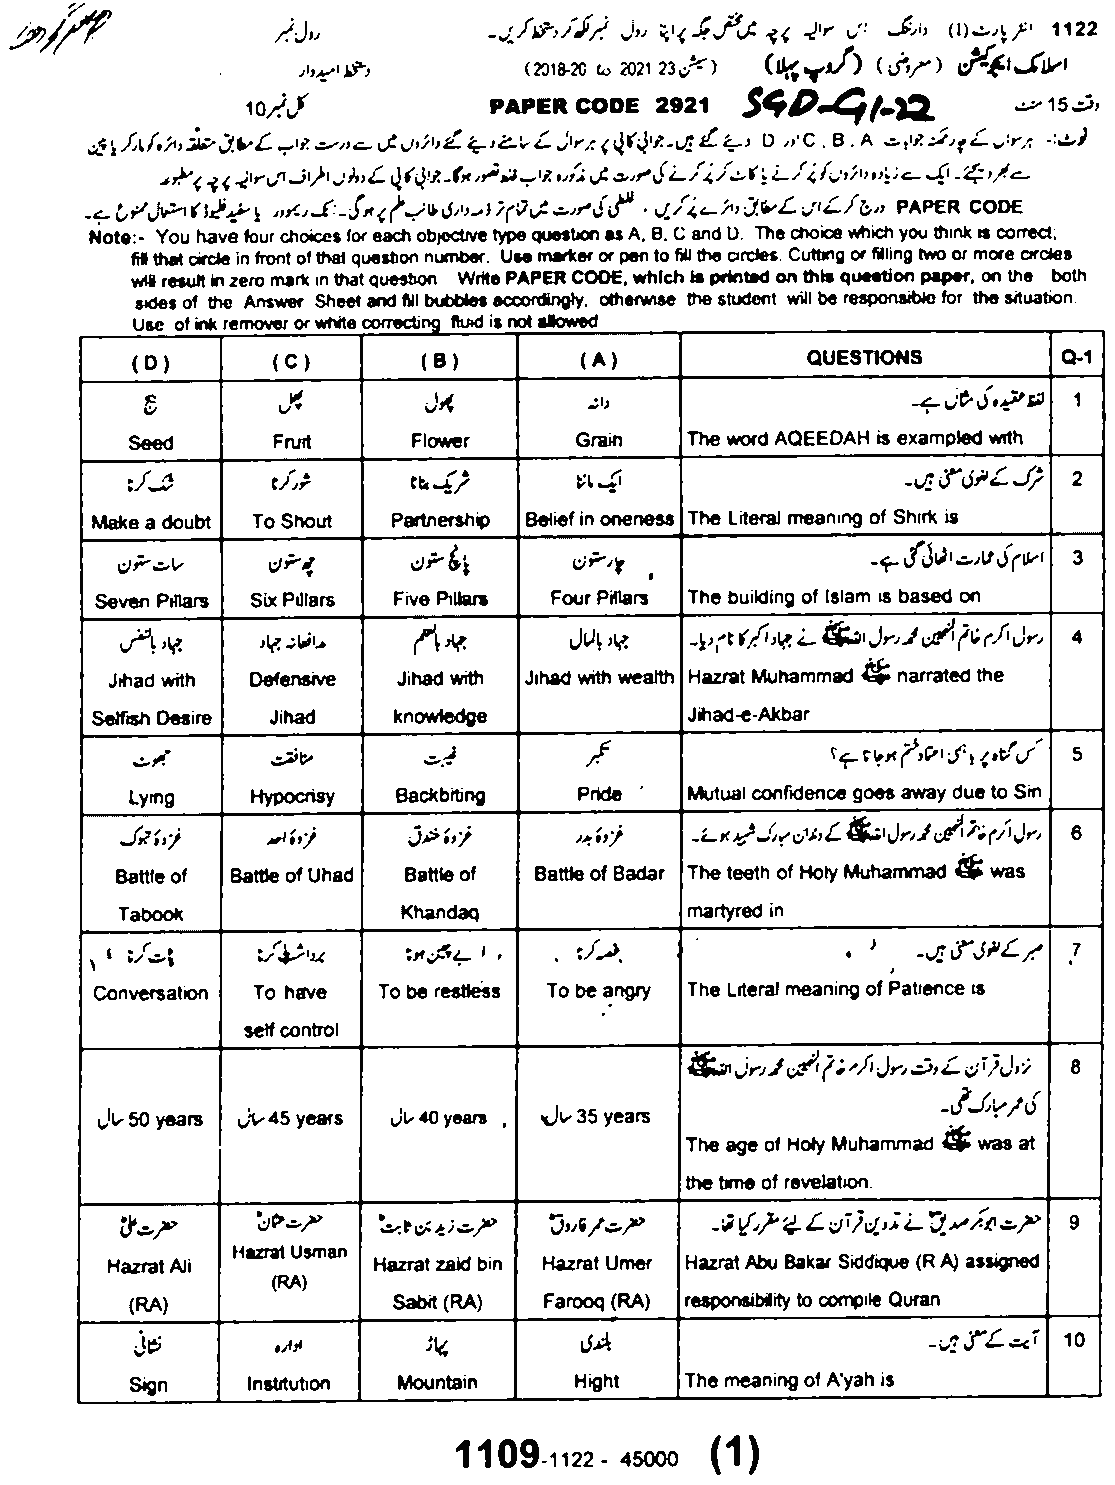 1122 انٹر پارٹ (I) وارننگ اس سوالیہ پرچہ میں مختص جگہ پر اپنا رول نمبر لکھ کر دستخط کریں۔ رول نمبر
اسلامک ایجوکیشن (معروضی) (گروپ پہلا) (سیشن 23 2021 تا 20-2018) دستخط امیدوار
وقت 15 منٹ SGD-G1-22 PAPER CODE 2921 کل نمبر 10
نوٹ:- ہر سوال کے چار ممکنہ جوابات A ، B ، C اور D دیئے گئے ہیں۔ جوابی کاپی پر ہر سوال کے سامنے دیئے گئے دائروں میں سے درست جواب کے مطابق متعلقہ دائرہ کو مارکر یا پین
سے بھر دیجئے۔ ایک سے زیادہ دائروں کو پُر کرنے یا کاٹ کر پُر کرنے کی صورت میں مذکورہ جواب غلط تصور ہوگا۔ جوابی کاپی کے دونوں اطراف اس سوالیہ پرچہ پر مطبوعہ
PAPER CODE درج کر کے اس کے مطابق دائرے پُر کریں ، غلطی کی صورت میں تمام تر ذمہ داری طالب علم پر ہوگی۔ انک ریموور یا سفید فلیوڈ کا استعمال ممنوع ہے۔
Note:- You have four choices for each objective type question as A, B, C and D. The choice which you think is correct;
fill that circle in front of that question number. Use marker or pen to fill the circles. Cutting or filling two or more circles
will result in zero mark in that question Write PAPER CODE, which is printed on this question paper, on the both
sides of the Answer Sheet and fill bubbles accordingly, otherwise the student will be responsible for the situation.
Use of ink remover or white correcting fluid is not allowed
(D) (C) (B) (A) QUESTIONS Q-1
بیج پھل پھول دانہ لفظ عقیدہ کی مثال ہے۔ 1
Seed Fruit Flower Grain The word AQEEDAH is exampled with
شک کرنا شور کرنا شریک بنانا ایک ماننا شرک کے لغوی معنی ہیں۔ 2
Make a doubt To Shout Partnership Belief in oneness The Literal meaning of Shirk is
سات ستون چھ ستون پانچ ستون چار ستون اسلام کی عمارت اٹھائی گئی ہے۔ 3
Seven Pillars Six Pillars Five Pillars Four Pillars The building of Islam is based on
جہاد بالنفس مدافعانہ جہاد جہاد بالعلم جہاد بالمال رسول اکرم خاتم النبیین محمد رسول اللہ ﷺ نے جہاد اکبر کا نام دیا۔ 4
Jihad with Defensive Jihad with Jihad with wealth Hazrat Muhammad ﷺ narrated the
Selfish Desire Jihad knowledge Jihad-e-Akbar
جھوٹ منافقت غیبت تکبر کس گناہ پر باہمی اعتماد ختم ہو جاتا ہے؟ 5
Lying Hypocrisy Backbiting Pride Mutual confidence goes away due to Sin
غزوہ تبوک غزوہ احد غزوہ خندق غزوہ بدر رسول اکرم خاتم النبیین محمد رسول اللہ ﷺ کے دندان مبارک شہید ہوئے۔ 6
Battle of Battle of Uhad Battle of Battle of Badar The teeth of Holy Muhammad ﷺ was
Tabook Khandaq martyred in
بات کرنا برداشت کرنا بے چین ہونا غصہ کرنا صبر کے لغوی معنی ہیں۔ 7
Conversation To have To be restless To be angry The Literal meaning of Patience is
self control
نزول قرآن کے وقت رسول اکرم خاتم النبیین محمد رسول اللہ ﷺ 8
کی عمر مبارک تھی۔
50 years سال 45 years سال 40 years سال 35 years سال
The age of Holy Muhammad ﷺ was at
the time of revelation.
حضرت علیؓ حضرت عثمانؓ حضرت زید بن ثابتؓ حضرت عمر فاروقؓ حضرت ابوبکر صدیقؓ نے تدوین قرآن کے لیئے مقرر کیا تھا۔ 9
Hazrat Ali Hazrat Usman Hazrat zaid bin Hazrat Umer Hazrat Abu Bakar Siddique (R A) assigned
(RA) (RA) Sabit (RA) Farooq (RA) responsibility to compile Quran
نشانی ادارہ پہاڑ بلندی آیت کے معنی ہیں۔ 10
Sign Institution Mountain Hight The meaning of A'yah is
1109-1122 - 45000 (1)